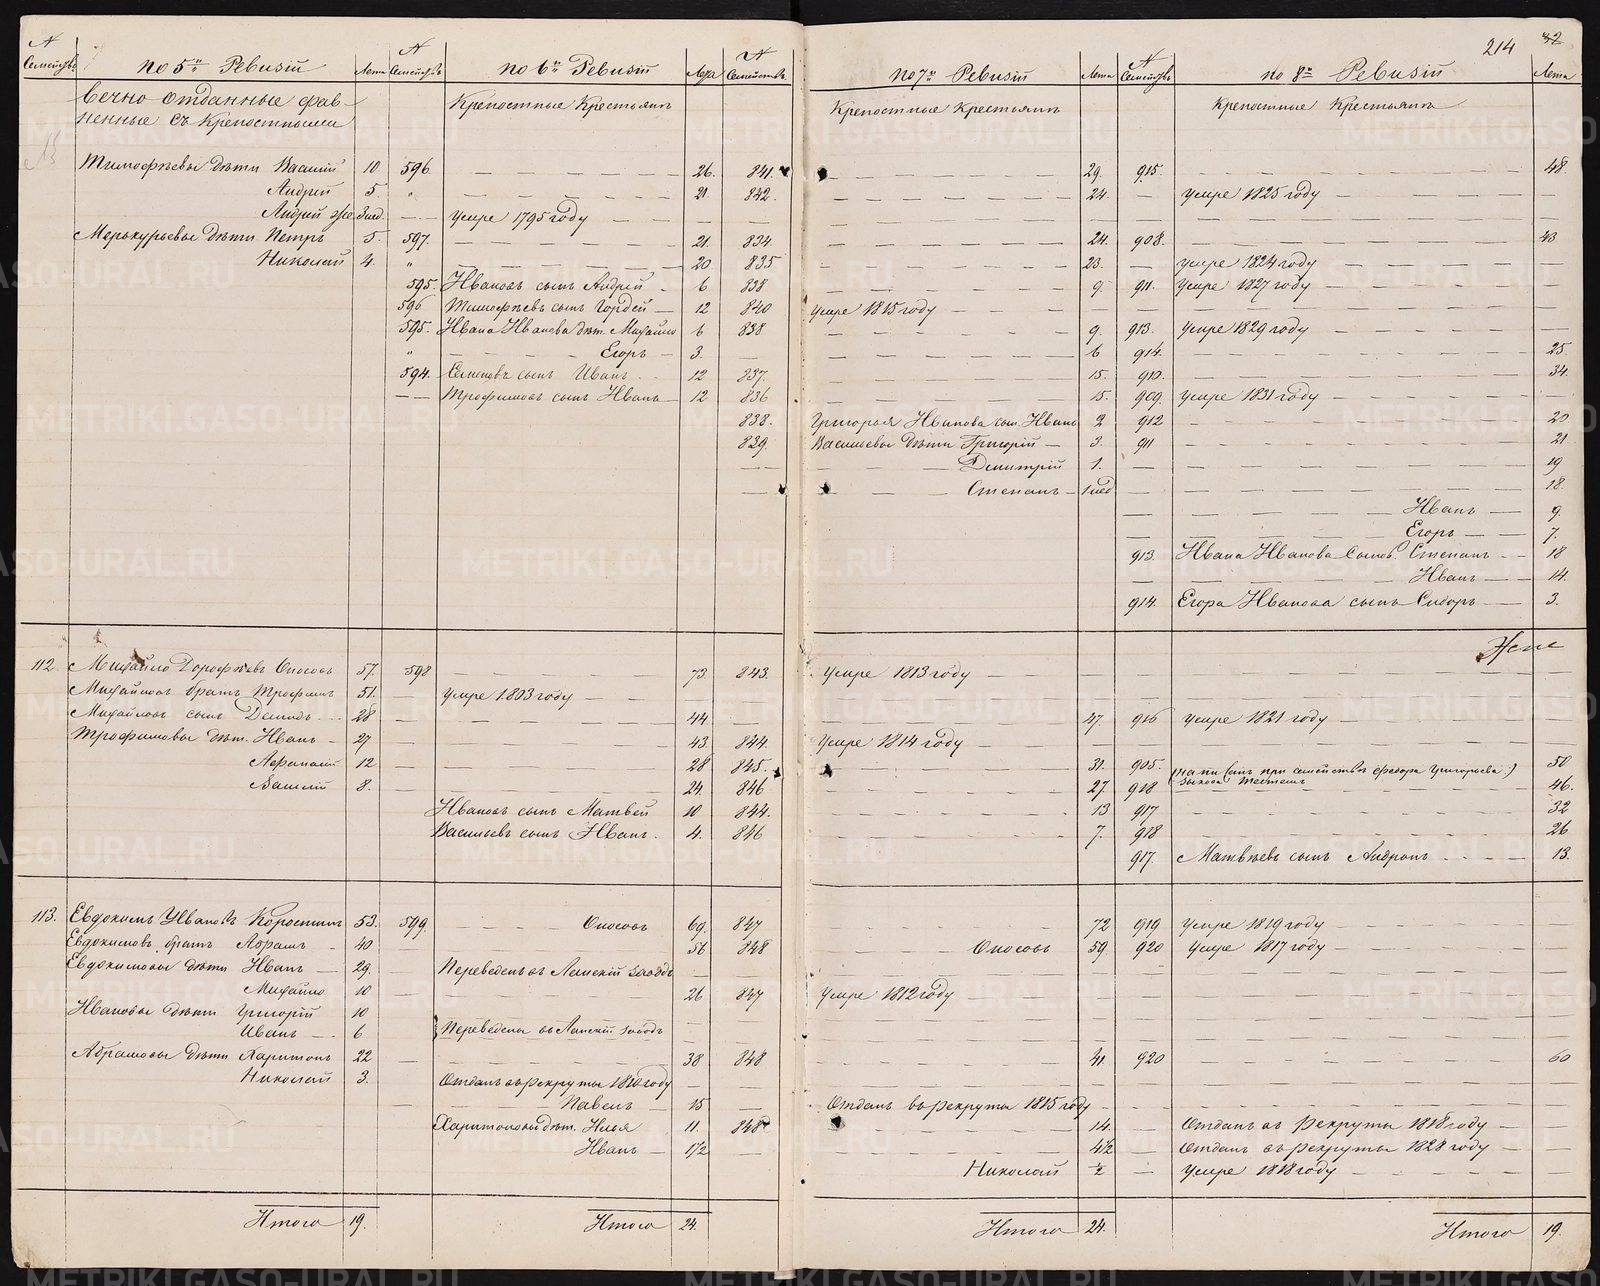 214 32
№ Семействъ По 5й Ревизіи Лета № Семействъ По 6й Ревизіи Лета № Семействъ По 7й Ревизіи Лета № Семействъ По 8й Ревизіи Лета
Вечно отданные срав- Крепостные Крестьянъ Крепостные Крестьянъ Крепостные Крестьянъ
ненные съ Крепостными
Тимофѣевы дѣти Василій 10. 596. 26. 841. 29. 915. 48.
Андрей 5 " 21. 842. 24. — Умре 1825 году
Андрей же 3 нед. Умре 1795 году
Меркурьевы дѣти Петръ 5. 597. 21. 834. 24. 908. 43
Николай 4. " 20. 835 23. — Умре 1824 году
595. Ивановъ сынъ Андрей 6 838 9. 911. Умре 1827 году
596 Тимофѣевъ сынъ Гордей 12 840 Умре 1815 году
595. Ивана Иванова дѣт. Михайло 6 838 9. 913. Умре 1829 году
" Егоръ 3. — 6 914. 25.
594. Семеновъ сынъ Иванъ 12 837. 15. 910. 34.
Трофимовъ сынъ Иванъ 12 836 15. 909. Умре 1831 году
838. Григорья Иванова сын. Иванъ 2 912 20
839. Васильевы дѣти Григорій 3. 911 21.
Дмитрій 1. 19
Степанъ 1 нед 18.
Иванъ 9.
Егоръ 7.
913 Ивана Иванова сынов. Степанъ 18
Иванъ 14.
914. Егора Иванова сынъ Сидоръ 3.
112 Михайло Дорофѣевъ Оносовъ 57. 598 73. 843. Умре 1813 году
Михайловъ братъ Трофимъ 51. Умре 1803 году
Михайловъ сынъ Демидъ 28 44 47. 916 Умре 1821 году
Трофимовы дѣт. Иванъ 27 43. 844. Умре 1814 году
Афанасій 12 28 845. 31. 905. (написанъ при семействѣ Федора Григорьева) 50
Василій 8. 24. 846 27. 918 46.
Ивановъ сынъ Матвей 10 844. 13 917 32
Васильевъ сынъ Иванъ. 4. 846 7. 918 26
917. Матвѣевъ сынъ Андронъ 13.
113. Евдокимъ Ивановъ Коростинъ 53. 599. Оносовъ 69. 847 72 919 Умре 1819 году
Евдокимовъ братъ Абрамъ 40 56 848 Оносовъ 59. 920 Умре 1817 году
Евдокимовы дѣти Иванъ 29. Переведенъ в Лапскій заводъ
Михайло 10 26 847 Умре 1812 году
Ивановы дѣти Григорій 10
Иванъ 6. } Переведены въ Лапскій заводъ
Абрамовы дѣти Харитонъ 22 38 848 41. 920 60
Николай 3. Отданъ въ рекруты 1810 году
Павелъ 15 Отданъ въ рекруты 1815 году
Харитоновы дѣт. Илья 11. 848 14. Отданъ въ рекруты 1818 году
Иванъ 1/2 4 1/2 Отданъ въ рекруты 1828 году
Николай 1/2 Умре 1818 году
Итого 19. Итого 24. Итого 24. Итого 19.
METRIKI.GASO-URAL.RU